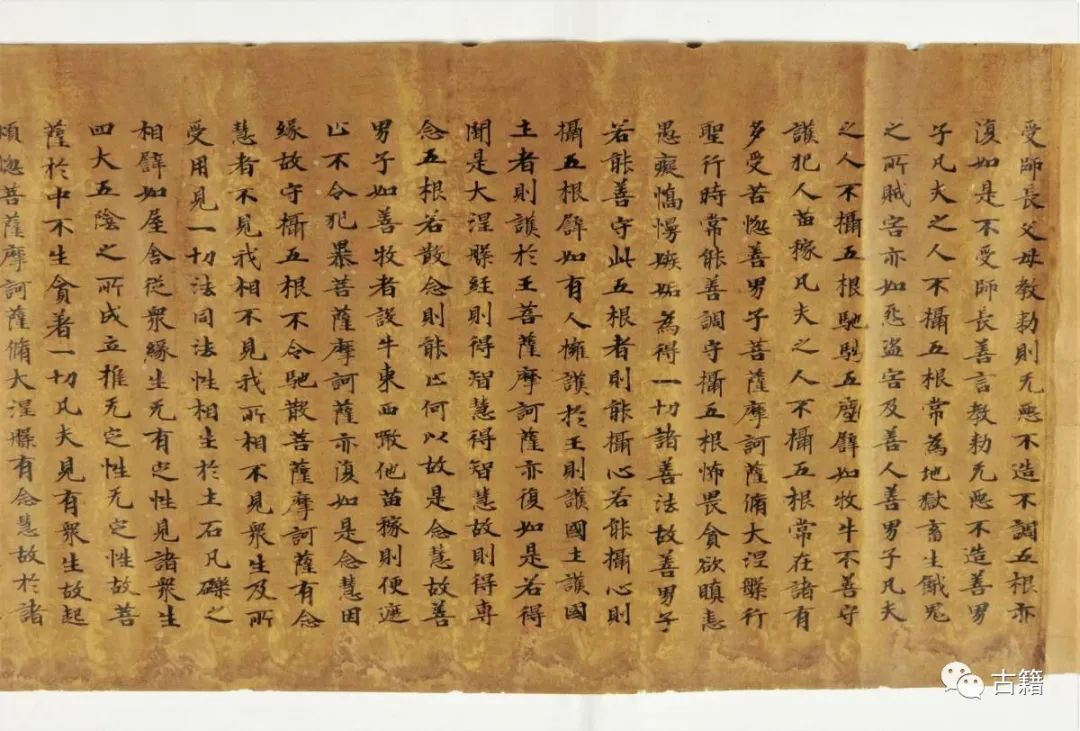 受師長父母教勑則无惡不造不調五根亦
復如是不受師長善言教勑无惡不造善男
子凡夫之人不攝五根常為地獄畜生餓鬼
之所賊害亦如惡盜害及善人善男子凡夫
之人不攝五根馳騁五塵譬如牧牛不善守
護犯人苗稼凡夫之人不攝五根常在諸有
多受苦惱善男子菩薩摩訶薩脩大涅槃行
聖行時常能善調守攝五根怖畏貪欲瞋恚
愚癡憍慢嫉妬為得一切諸善法故善男子
若能善守此五根者則能攝心若能攝心則
攝五根譬如有人擁護於王則護國土護國
土者則護於王菩薩摩訶薩亦復如是若得
聞是大涅槃經則得智慧得智慧故則得專
念五根若散念則能止何以故是念慧故善
男子如善牧者設牛東西噉他苗稼則便遮
止不令犯暴菩薩摩訶薩亦復如是念慧因
緣故守攝五根不令馳散菩薩摩訶薩有念
慧者不見我相不見我所相不見衆生及所
受用見一切法同法性相生於土石凡礫之
相譬如屋舍從衆緣生无有定性見諸衆生
四大五陰之所成立推无定性无定性故菩
薩於中不生貪著一切凡夫見有衆生故起
煩惱菩薩摩訶薩脩大涅槃有念慧故於諸
古籍